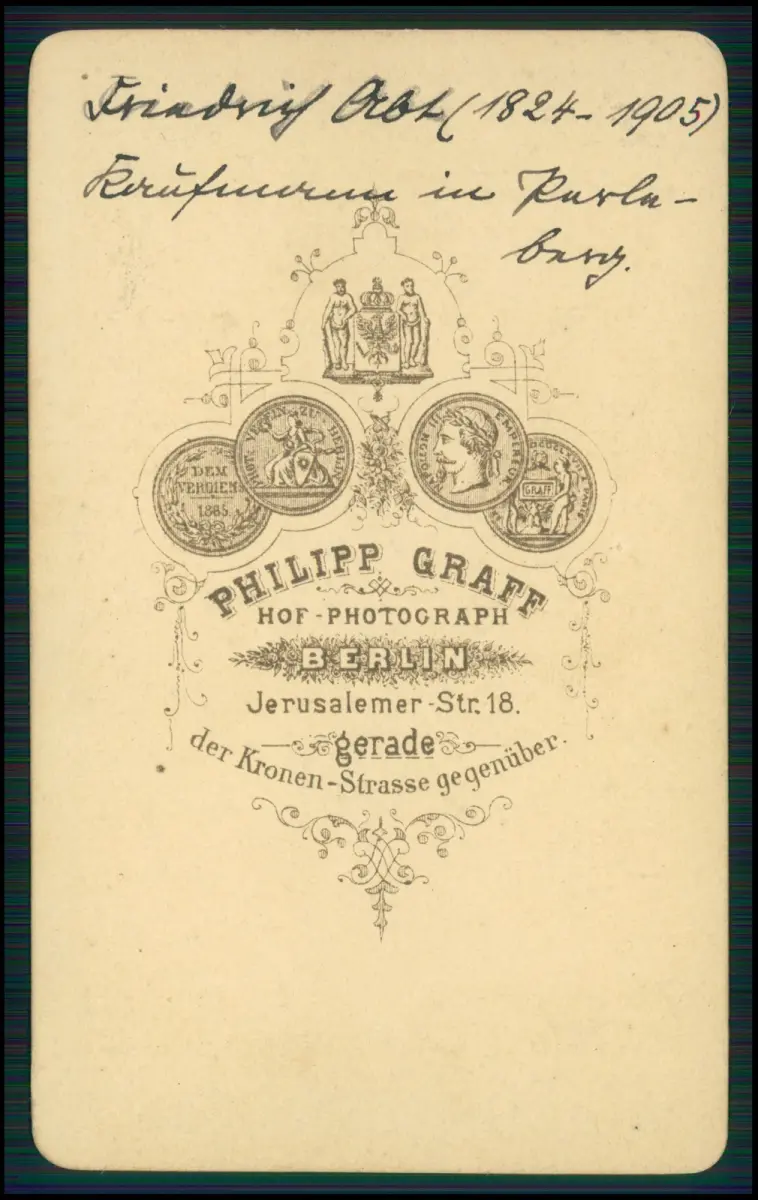 Friedrich Abt (1824-1905)
Kaufmann in Perle-
berg.
DEM
VERDIENS
1865
PHOT. VEREIN ZU BERLIN
NAPOLEON III EMPEREUR
GRAFF
PHILIPP GRAFF
HOF-PHOTOGRAPH
BERLIN
Jerusalemer-Str. 18.
gerade
der Kronen-Strasse gegenüber.